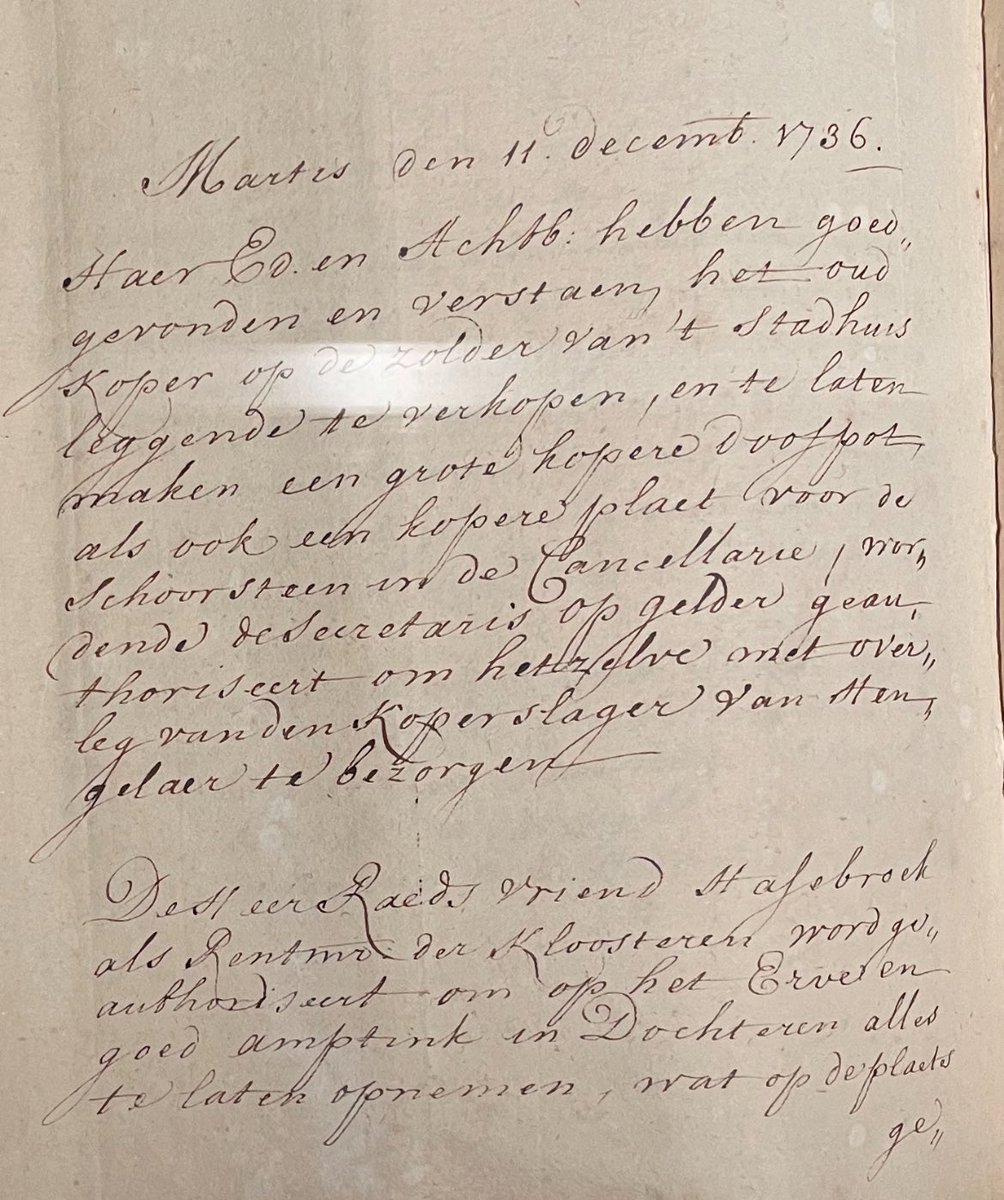 Martis den 11. decemb. 1736.
Haer Ed. en Achtb: hebben goed„
gevonden en verstaen, het oud
Koper op de zolder van 't Stadhuis
leggende te verkopen, en te laten
maken een grote kopere doofpot,
als ook een kopere plaet voor de
Schoorsteen in de Cancellarie, wor„
dende de Secretaris op gelder geau„
thoriseert om het zelve met over„
leg van den Koperslager van Hen„
gelaer te bezorgen
De Heer Raeds vriend Hasebroek
als Rentmr. der Kloosteren word ge„
authoriseert om op het Erve en
goed amptink in Dochteren alles
te laten opnemen, wat op de plaets
ge„